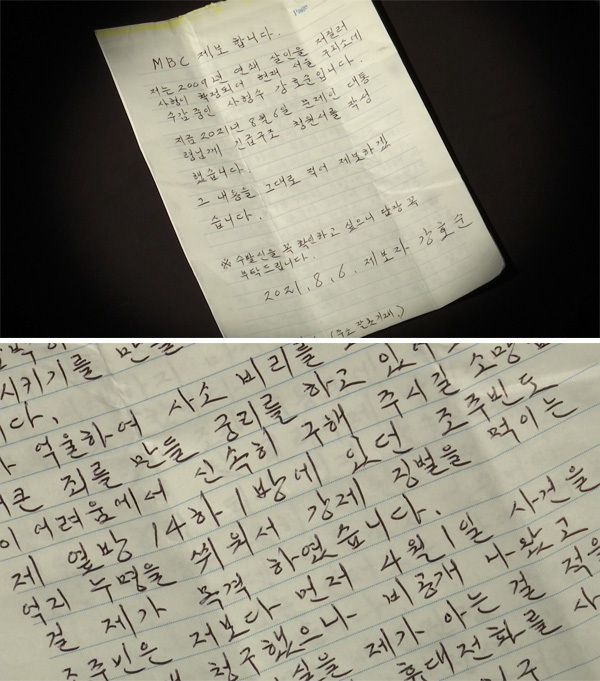 MBC 제보 합니다.
저는 2009년 연쇄 살인을 저질러
사형이 확정되어 현재 서울 구치소에
수감 중인 사형수 강호순입니다.
지금 2021년 8월 6일 문재인 대통
령님께 긴급구조 청원서를 작성
했습니다.
그 내용을 그대로 적어 제보하겠
습니다.
※ 수발신을 꼭 확인하고 싶으니 답장 꼭
부탁드립니다.
2021. 8. 6. 제보자 강호순
시키기를 만들
니다.
억울하여 사소 비리를
큰 죄를 만들 궁리를 하고 있
이 어려움에서 신속히 구해 주시길 소망
제 옆방 14하1방에 있던 조주빈도
억지 누명을 씌워서 강제 징벌을 먹이는
걸 제가 목격 하였습니다.
조주빈은 저보다 먼저 4월 1일 사건을
청구했으나 비공개 나왔고
사실을 제가 아는 걸 적을
휴대전화를 사